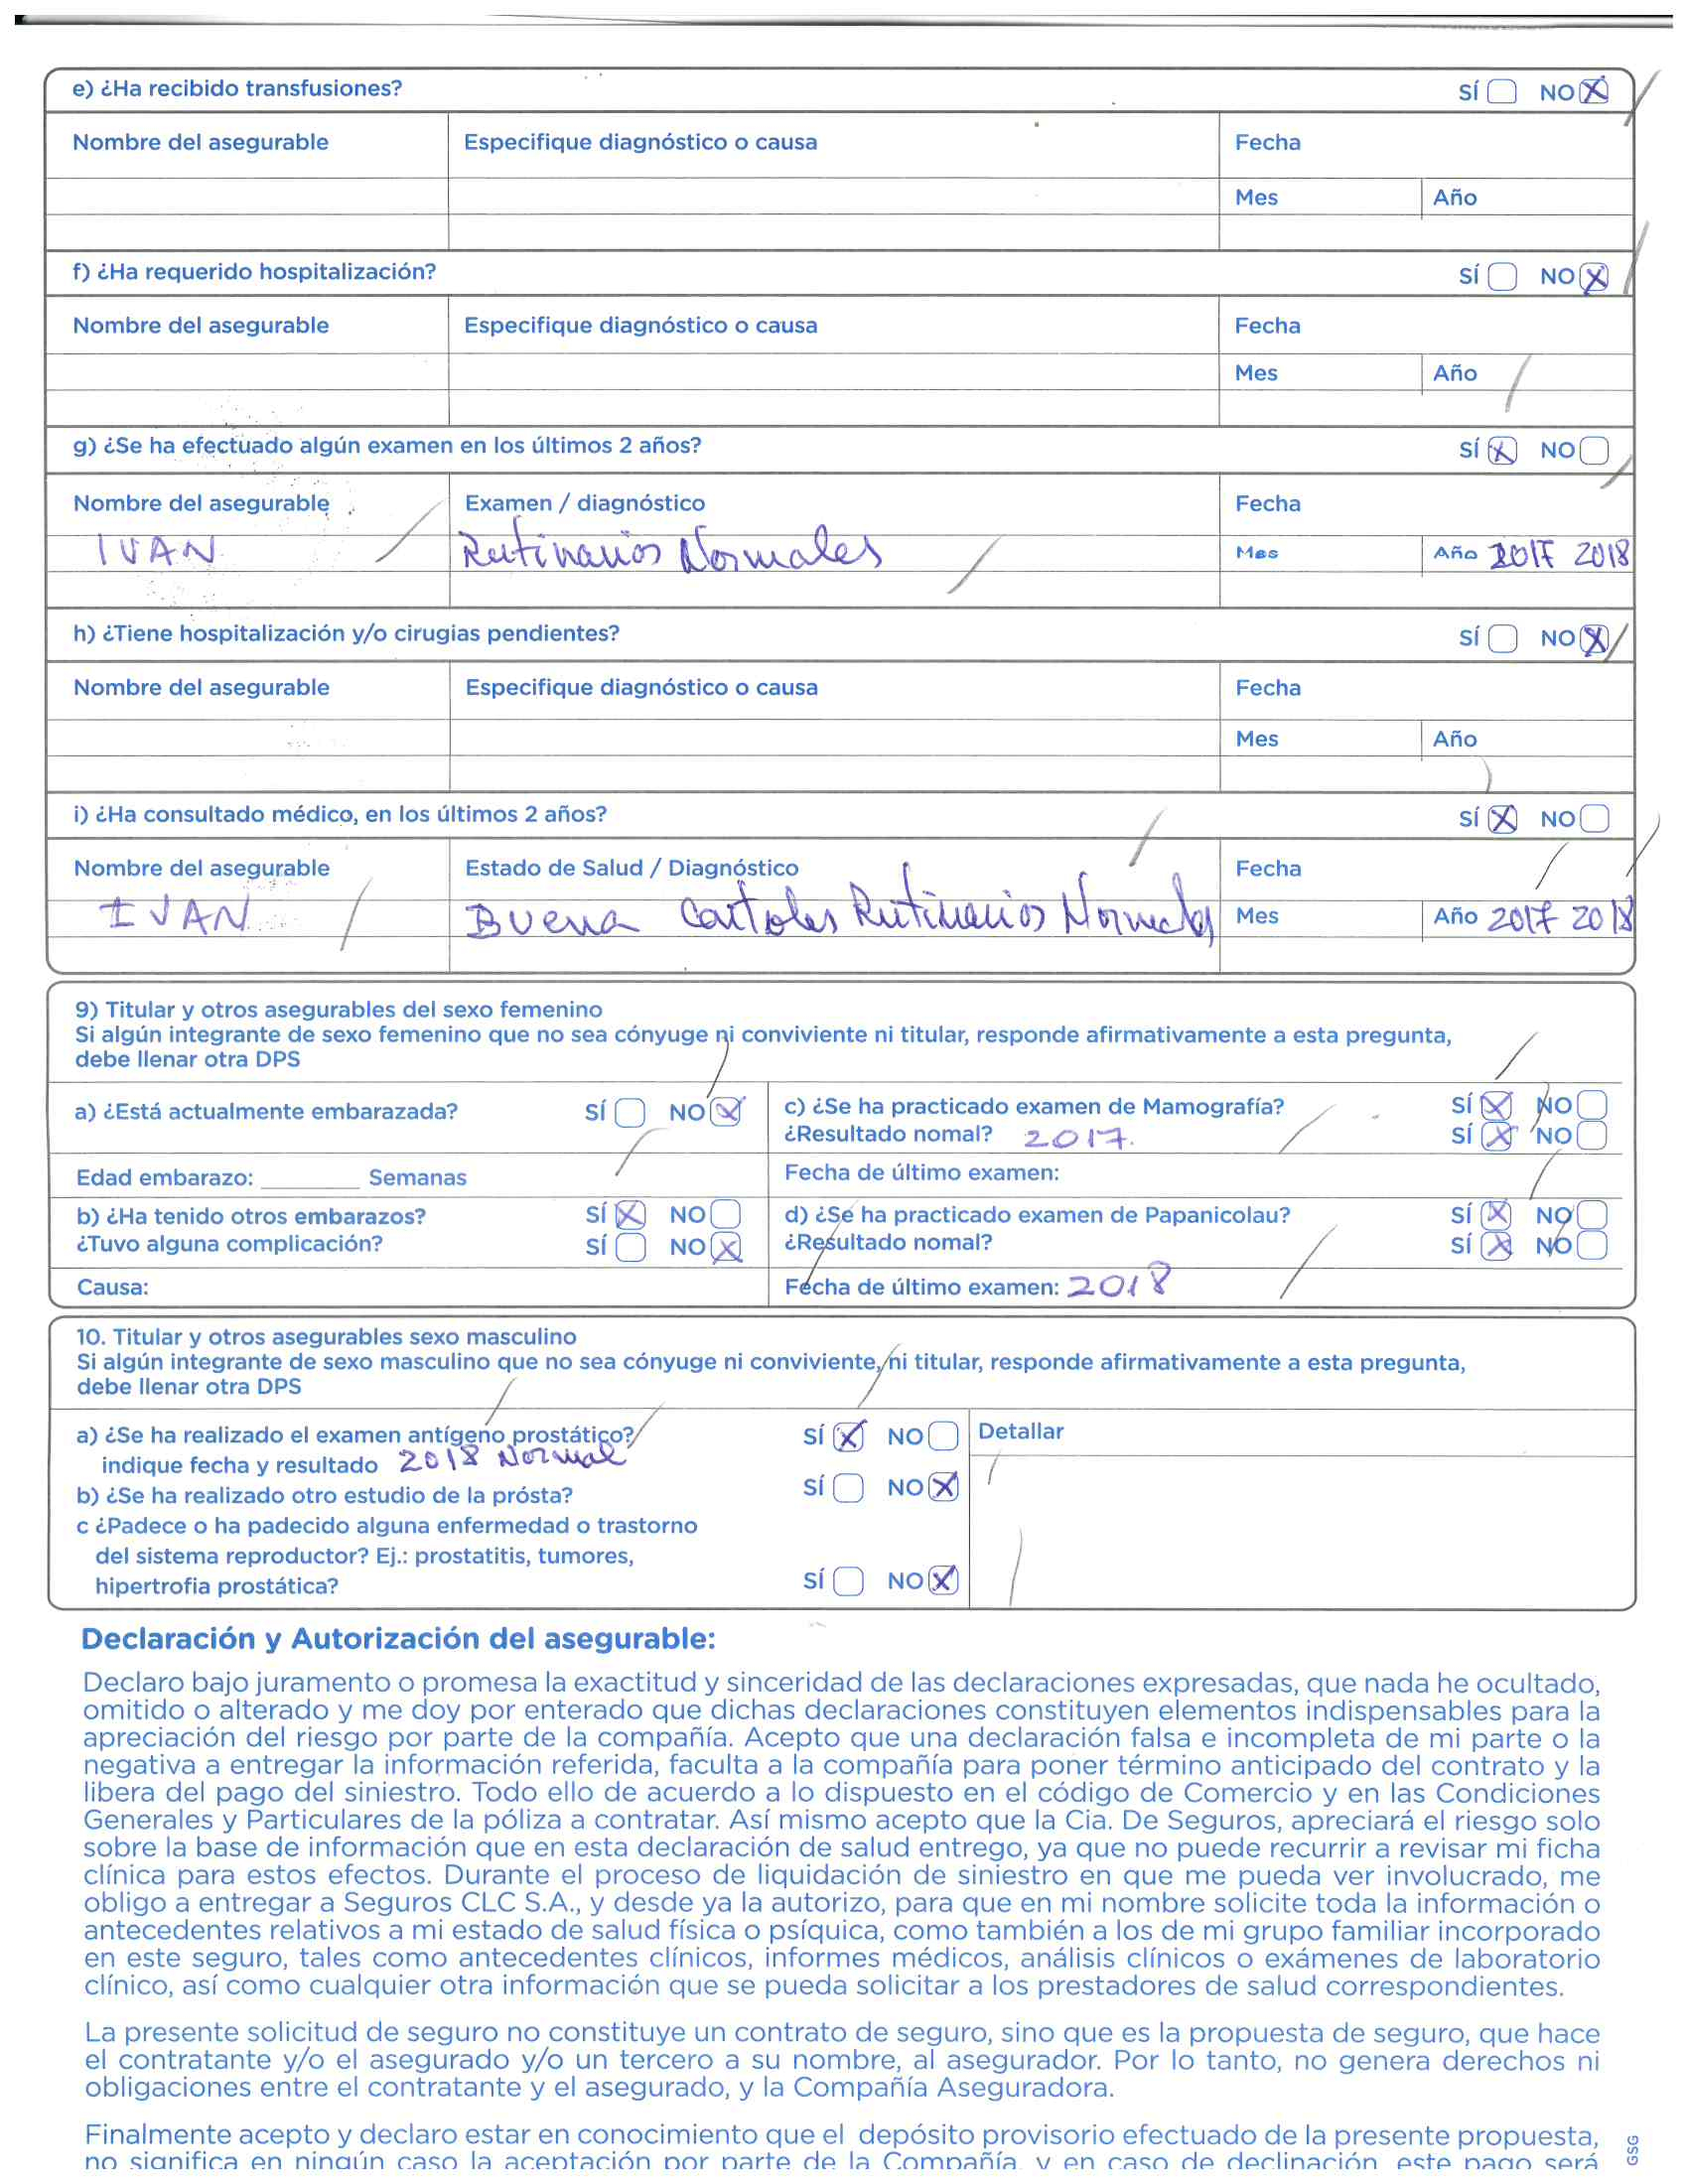 e) ¿Ha recibido transfusiones? SÍ NO X
Nombre del asegurable Especifique diagnóstico o causa Fecha
Mes Año
f) ¿Ha requerido hospitalización? SÍ NO X
Nombre del asegurable Especifique diagnóstico o causa Fecha
Mes Año
g) ¿Se ha efectuado algún examen en los últimos 2 años? SÍ X NO
Nombre del asegurable Examen / diagnóstico Fecha
IVAN Rutinarios Normales Mes Año 2017 2018
h) ¿Tiene hospitalización y/o cirugias pendientes? SÍ NO X
Nombre del asegurable Especifique diagnóstico o causa Fecha
Mes Año
i) ¿Ha consultado médico, en los últimos 2 años? SÍ X NO
Nombre del asegurable Estado de Salud / Diagnóstico Fecha
IVAN Buena Rutinarios Normales Mes Año 2017 2018
9) Titular y otros asegurables del sexo femenino
Si algún integrante de sexo femenino que no sea cónyuge ni conviviente ni titular, responde afirmativamente a esta pregunta,
debe llenar otra DPS
a) ¿Está actualmente embarazada? SÍ NO X
c) ¿Se ha practicado examen de Mamografía? SÍ X NO
¿Resultado nomal? 2017. SÍ X NO
Edad embarazo: ________ Semanas
Fecha de último examen:
b) ¿Ha tenido otros embarazos? SÍ X NO
¿Tuvo alguna complicación? SÍ NO X
d) ¿Se ha practicado examen de Papanicolau? SÍ X NO
¿Resultado nomal? SÍ X NO
Causa:
Fecha de último examen: 2018
10. Titular y otros asegurables sexo masculino
Si algún integrante de sexo masculino que no sea cónyuge ni conviviente, ni titular, responde afirmativamente a esta pregunta,
debe llenar otra DPS
a) ¿Se ha realizado el examen antígeno prostático? SÍ X NO Detallar
indique fecha y resultado 2018 Normal
b) ¿Se ha realizado otro estudio de la prósta? SÍ NO X
c ¿Padece o ha padecido alguna enfermedad o trastorno
del sistema reproductor? Ej.: prostatitis, tumores,
hipertrofia prostática? SÍ NO X
Declaración y Autorización del asegurable:
Declaro bajo juramento o promesa la exactitud y sinceridad de las declaraciones expresadas, que nada he ocultado,
omitido o alterado y me doy por enterado que dichas declaraciones constituyen elementos indispensables para la
apreciación del riesgo por parte de la compañía. Acepto que una declaración falsa e incompleta de mi parte o la
negativa a entregar la información referida, faculta a la compañía para poner término anticipado del contrato y la
libera del pago del siniestro. Todo ello de acuerdo a lo dispuesto en el código de Comercio y en las Condiciones
Generales y Particulares de la póliza a contratar. Así mismo acepto que la Cia. De Seguros, apreciará el riesgo solo
sobre la base de información que en esta declaración de salud entrego, ya que no puede recurrir a revisar mi ficha
clínica para estos efectos. Durante el proceso de liquidación de siniestro en que me pueda ver involucrado, me
obligo a entregar a Seguros CLC S.A., y desde ya la autorizo, para que en mi nombre solicite toda la información o
antecedentes relativos a mi estado de salud física o psíquica, como también a los de mi grupo familiar incorporado
en este seguro, tales como antecedentes clínicos, informes médicos, análisis clínicos o exámenes de laboratorio
clínico, así como cualquier otra información que se pueda solicitar a los prestadores de salud correspondientes.
La presente solicitud de seguro no constituye un contrato de seguro, sino que es la propuesta de seguro, que hace
el contratante y/o el asegurado y/o un tercero a su nombre, al asegurador. Por lo tanto, no genera derechos ni
obligaciones entre el contratante y el asegurado, y la Compañía Aseguradora.
Finalmente acepto y declaro estar en conocimiento que el depósito provisorio efectuado de la presente propuesta,
no significa en ningún caso la aceptación por parte de la Compañía, y en caso de declinación, este pago será
GSG